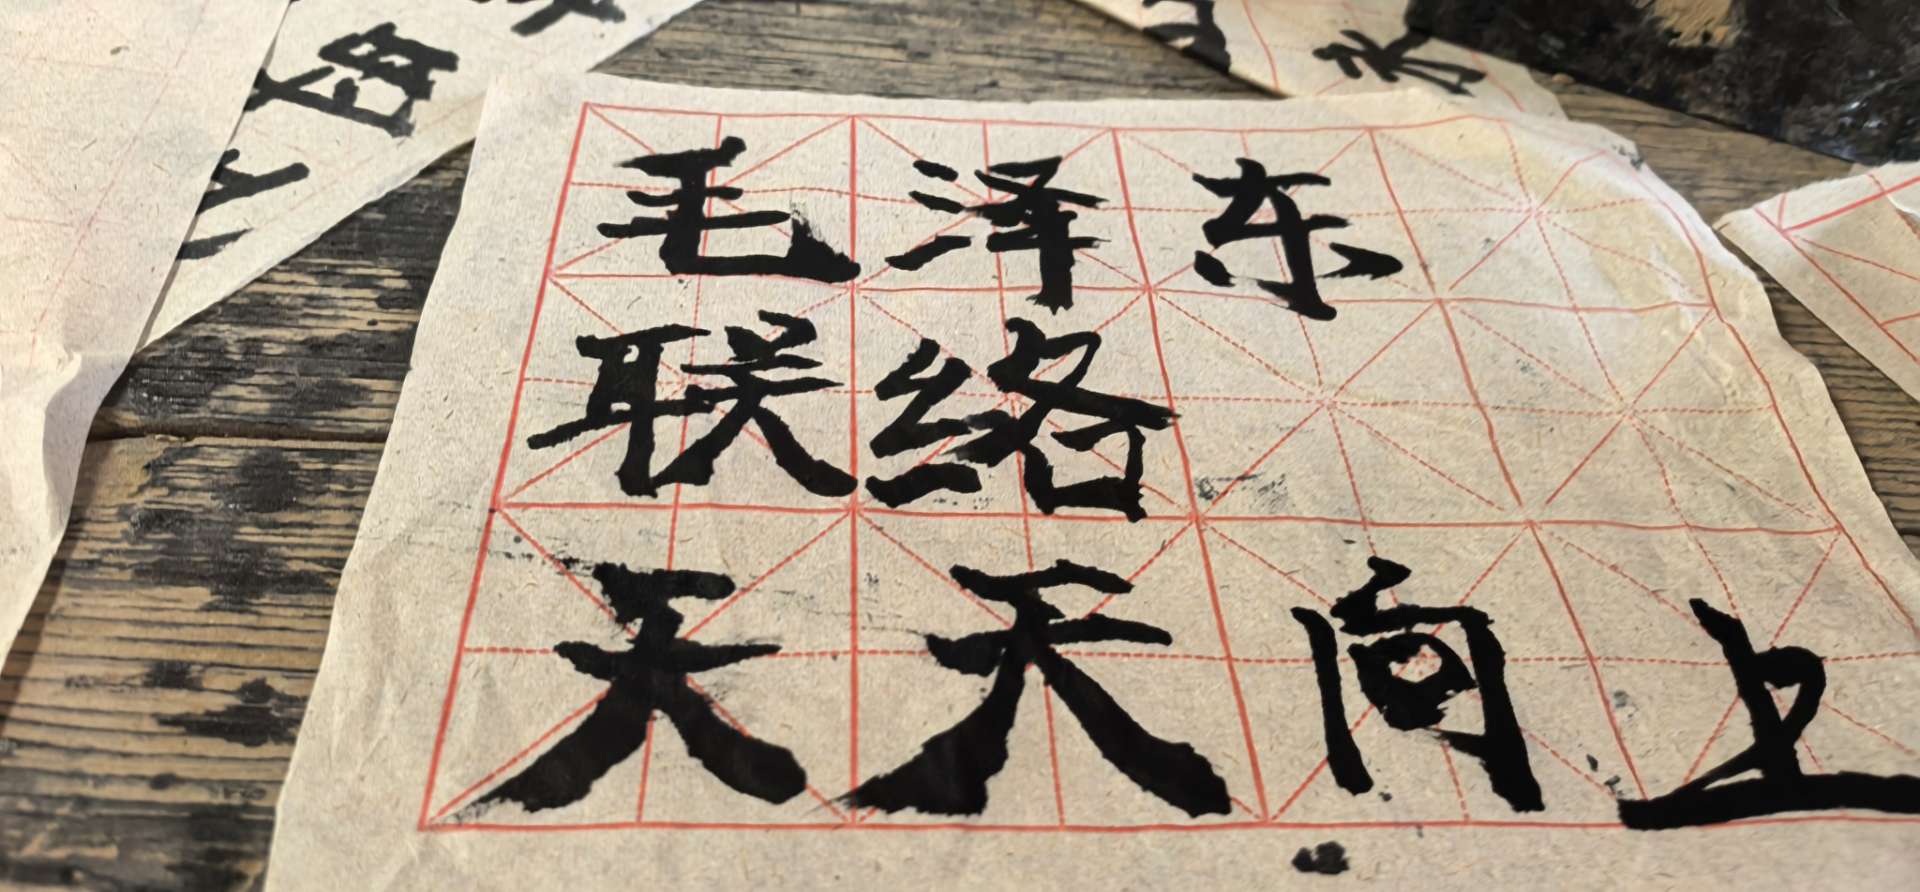 毛泽东
联络
天天向上